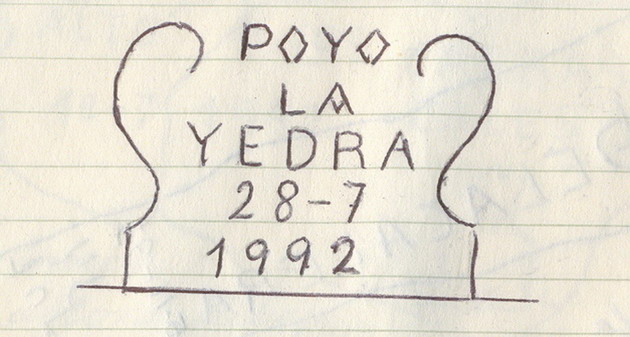 POYO
LA
YEDRA
28-7
1992